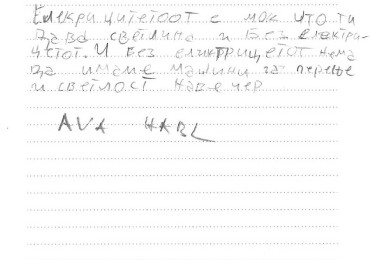 Елекрицитетоот е мок што ти
дава светлина и Без електри-
цетот. И без електрицетот нема
да имаме машини за перење
и светлост навечер
AVA HABL